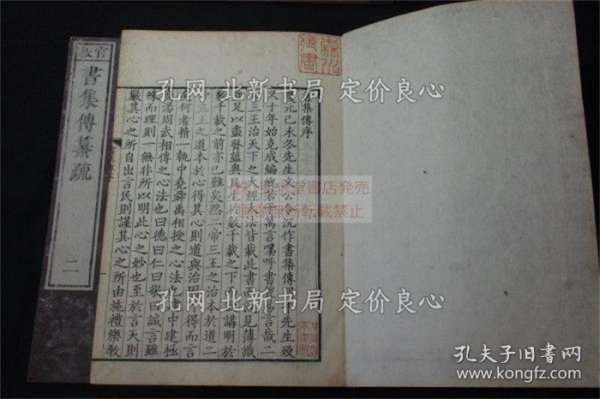 官板
書集傳纂疏 二
集傳序
元己未冬先生文公令沈作書集傳 先生歿
又十年始克成編 若干萬言嗚呼書 易言哉二
三王治天下之大經 法皆載此書 見薄識
足以盡發蘊奧且生於數千載之下 講明於
數千載之前亦已難矣然二帝三王之治本於道二
帝三王之道本於心得其心則道與治固可得而言
矣何者精一執中堯舜禹相授之心法也建中建極
商湯周武相傳之心法也曰德曰仁曰敬曰誠言雖
殊而理則一無非所以明此心之妙也至於言天則
嚴其心之所自出言民則謹其心之所由施禮樂教
孔网 北新书局 定价良心
孔网 北新书局 定价良心
孔网 北新书局 定价良心
書店発売
無断転載禁止
孔夫子旧书网
www.kongfz.com